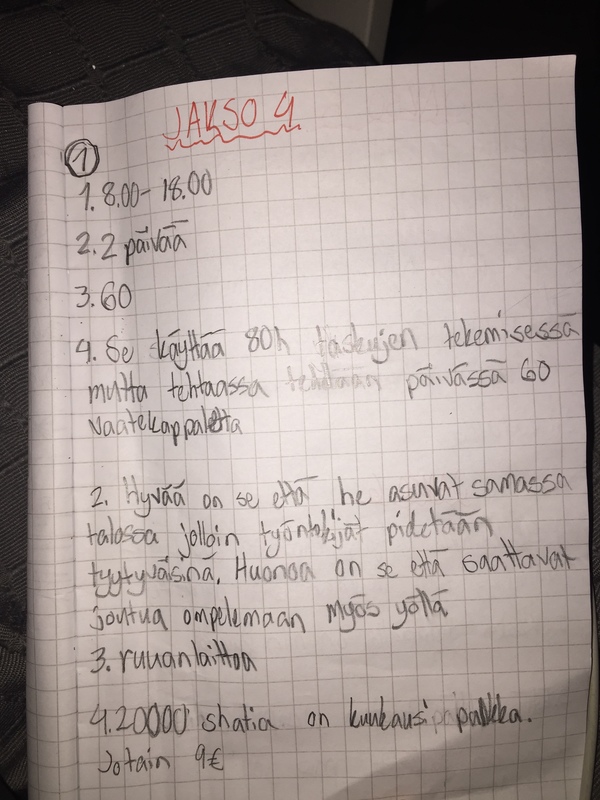 JAKSO 4
1
1. 8.00 - 18.00
2. 2 päivää
3. 60
4. Se käyttää 80h taskujen tekemisessä
mutta tehtaassa tehtään päivässä 60
vaatekappaletta
2. Hyvää on se että he asuvat samassa
talossa jolloin työntekijät pidetään
tyytyväisinä. Huonoa on se että saattavat
joutua ompelemaan myös yöllä
3. ruuanlaittoa
4. 20000 shatia on kuukausi palkka.
Jotain 9€